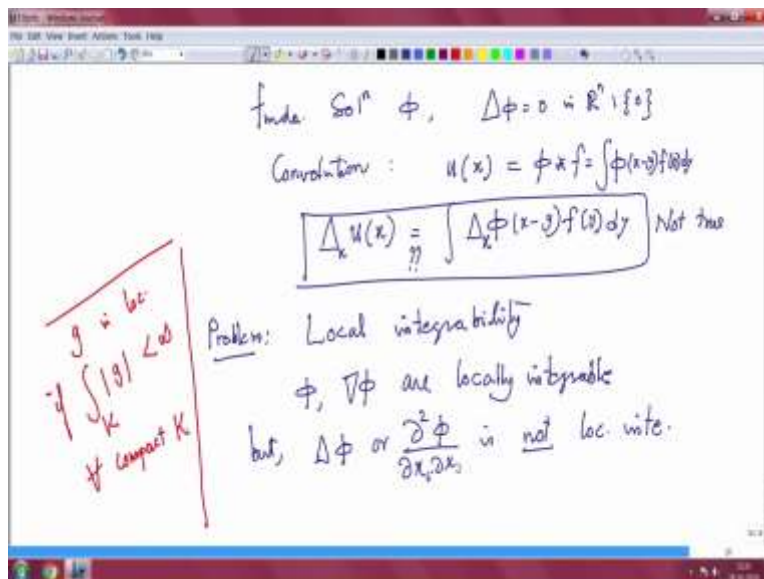 File Edit View Insert Actions Tools Help
funda. Solⁿ ϕ, Δϕ = 0 in ℝⁿ \ {0}
Convolution : u(x) = ϕ * f = ∫ϕ(x-y)f(y)dy
Δₓ u(x) = ?? ∫ Δₓ ϕ(x-y) f(y) dy Not true
Problem: Local integrability
ϕ, ∇ϕ are locally integrable
but, Δϕ or ∂²ϕ/∂xᵢ∂xⱼ is not loc. inte.
g in loc.
if ∫_K |g| < ∞
∀ compact K